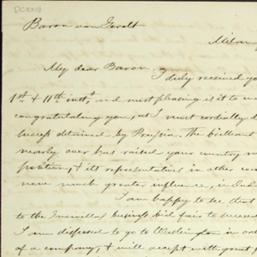 Baron von Gerolt
Milan,
My dear Baron
I duly received yo
1st & 11th inst, and most pleasing is it to me
congratulating you, as I most cordially d
success obtained by Prussia. The brilliant
nearly over but raised your country
position, & its representatives in other cou
have much greater influence,
I am happy to see that
to the business bid fair to succeed
I am disposed to go to Washington in
of a company, & will accept with great